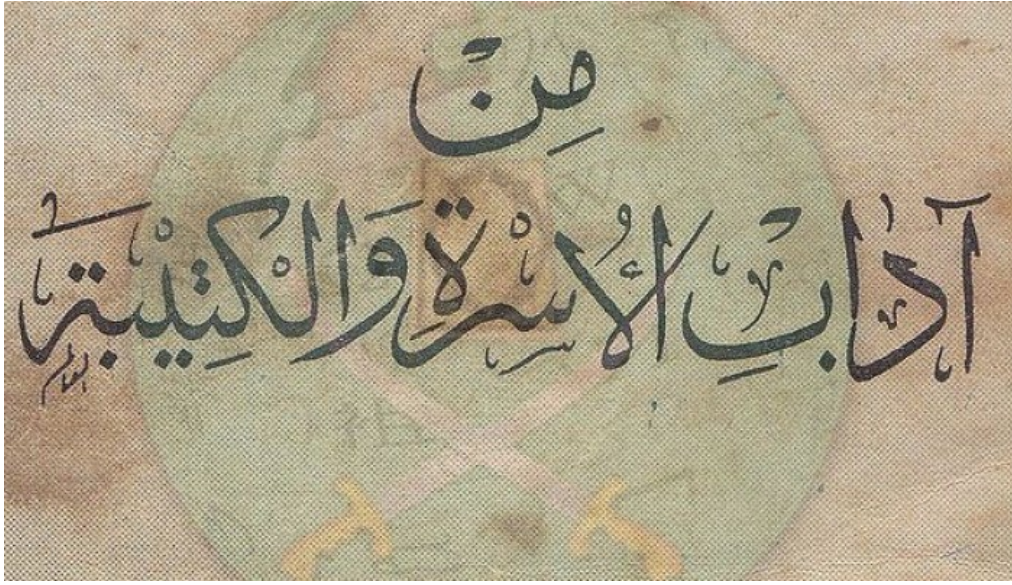 مِنْ
آدَابِ الْأُسْرَةِ وَالْكَتِيْبَةِ